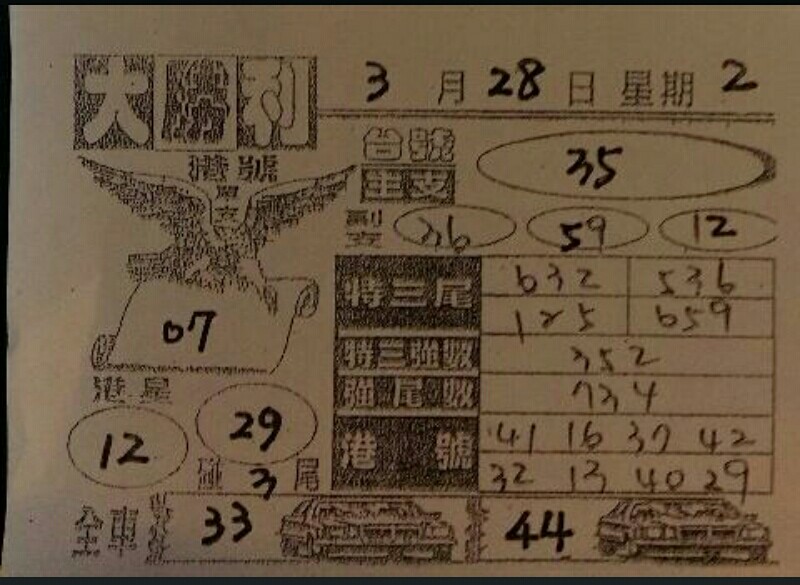 大勝利
3月28日星期2
港號
專支
07
台號
主支
35
副支
36 59 12
特三尾
632 536
125 659
特三強數
352
強尾數
734
港星
12 29
3尾
港號
41 16 37 42
32 13 40 29
全車
33 44